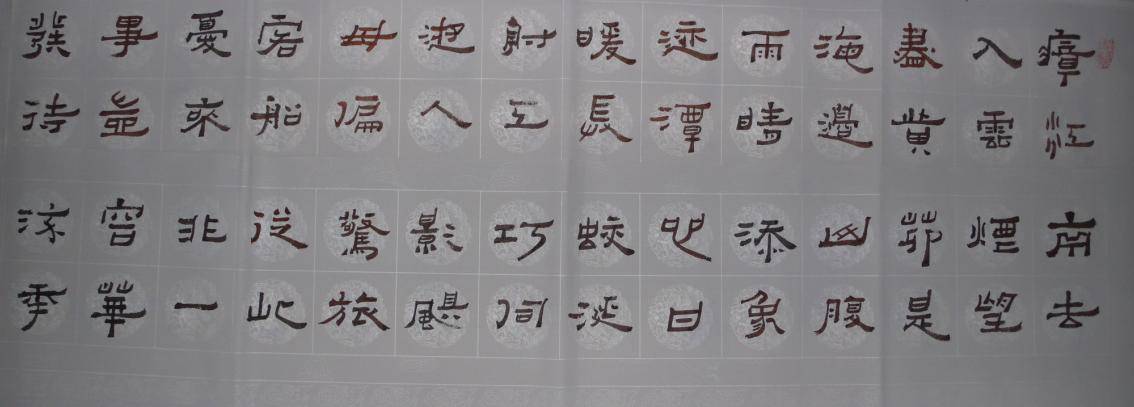 瘴江南去
入雲煙望
盡黄茆是
海邊山腹
雨晴添象
迹潭心日
暖長蛟涎
射工巧伺
遊人影颶
母偏驚旅
客船從此
憂來非一
事豈容華
髮待流年